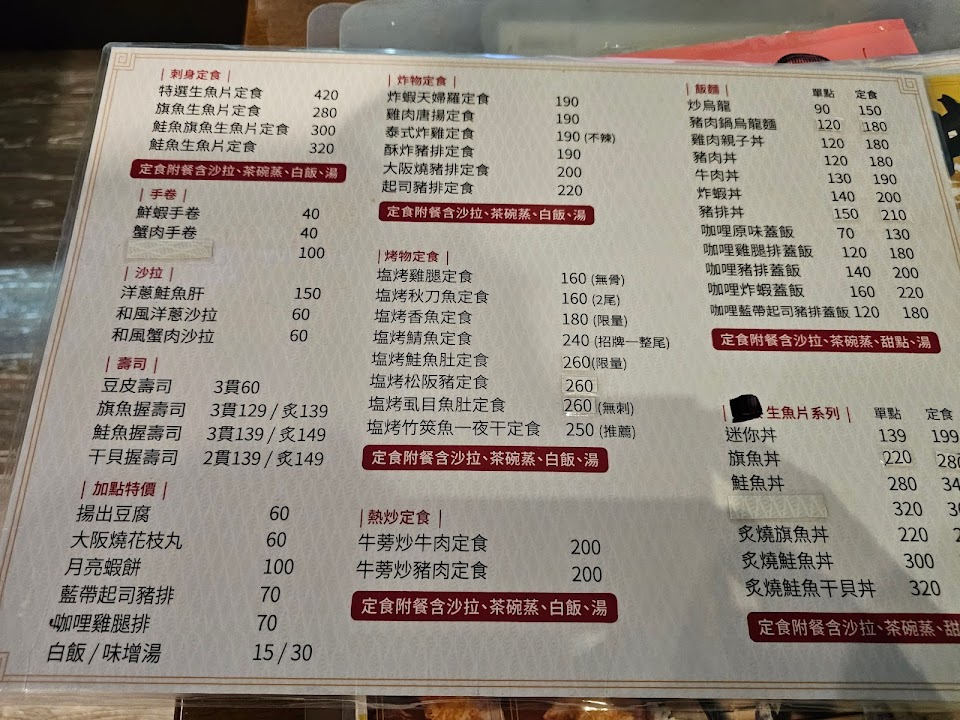 | 刺身定食 |
特選生魚片定食 420
旗魚生魚片定食 280
鮭魚旗魚生魚片定食 300
鮭魚生魚片定食 320
定食附餐含沙拉、茶碗蒸、白飯、湯
| 手卷 |
鮮蝦手卷 40
蟹肉手卷 40
100
| 沙拉 |
洋蔥鮭魚肝 150
和風洋蔥沙拉 60
和風蟹肉沙拉 60
| 壽司 |
豆皮壽司 3貫60
旗魚握壽司 3貫129 / 炙139
鮭魚握壽司 3貫139 / 炙149
干貝握壽司 2貫139 / 炙149
| 加點特價 |
揚出豆腐 60
大阪燒花枝丸 60
月亮蝦餅 100
藍帶起司豬排 70
咖哩雞腿排 70
白飯 / 味增湯 15 / 30
| 炸物定食 |
炸蝦天婦羅定食 190
雞肉唐揚定食 190
泰式炸雞定食 190 (不辣)
酥炸豬排定食 190
大阪燒豬排定食 200
起司豬排定食 220
定食附餐含沙拉、茶碗蒸、白飯、湯
| 烤物定食 |
塩烤雞腿定食 160 (無骨)
塩烤秋刀魚定食 160 (2尾)
塩烤香魚定食 180 (限量)
塩烤鯖魚定食 240 (招牌一整尾)
塩烤鮭魚肚定食 260(限量)
塩烤松阪豬定食 260
塩烤虱目魚肚定食 260 (無刺)
塩烤竹筴魚一夜干定食 250 (推薦)
定食附餐含沙拉、茶碗蒸、白飯、湯
| 熱炒定食 |
牛蒡炒牛肉定食 200
牛蒡炒豬肉定食 200
定食附餐含沙拉、茶碗蒸、白飯、湯
| 飯麵 | 單點 定食
炒烏龍 90 150
豬肉鍋烏龍麵 120 180
雞肉親子丼 120 180
豬肉丼 120 180
牛肉丼 130 190
炸蝦丼 140 200
豬排丼 150 210
咖哩原味蓋飯 70 130
咖哩雞腿排蓋飯 120 180
咖哩豬排蓋飯 140 200
咖哩炸蝦蓋飯 160 220
咖哩藍帶起司豬排蓋飯 120 180
定食附餐含沙拉、茶碗蒸、甜點、湯
| 生魚片系列 | 單點 定食
迷你丼 139 199
旗魚丼 220 280
鮭魚丼 280
320
炙燒旗魚丼 220
炙燒鮭魚丼 300
炙燒鮭魚干貝丼 320
定食附餐含沙拉、茶碗蒸、甜